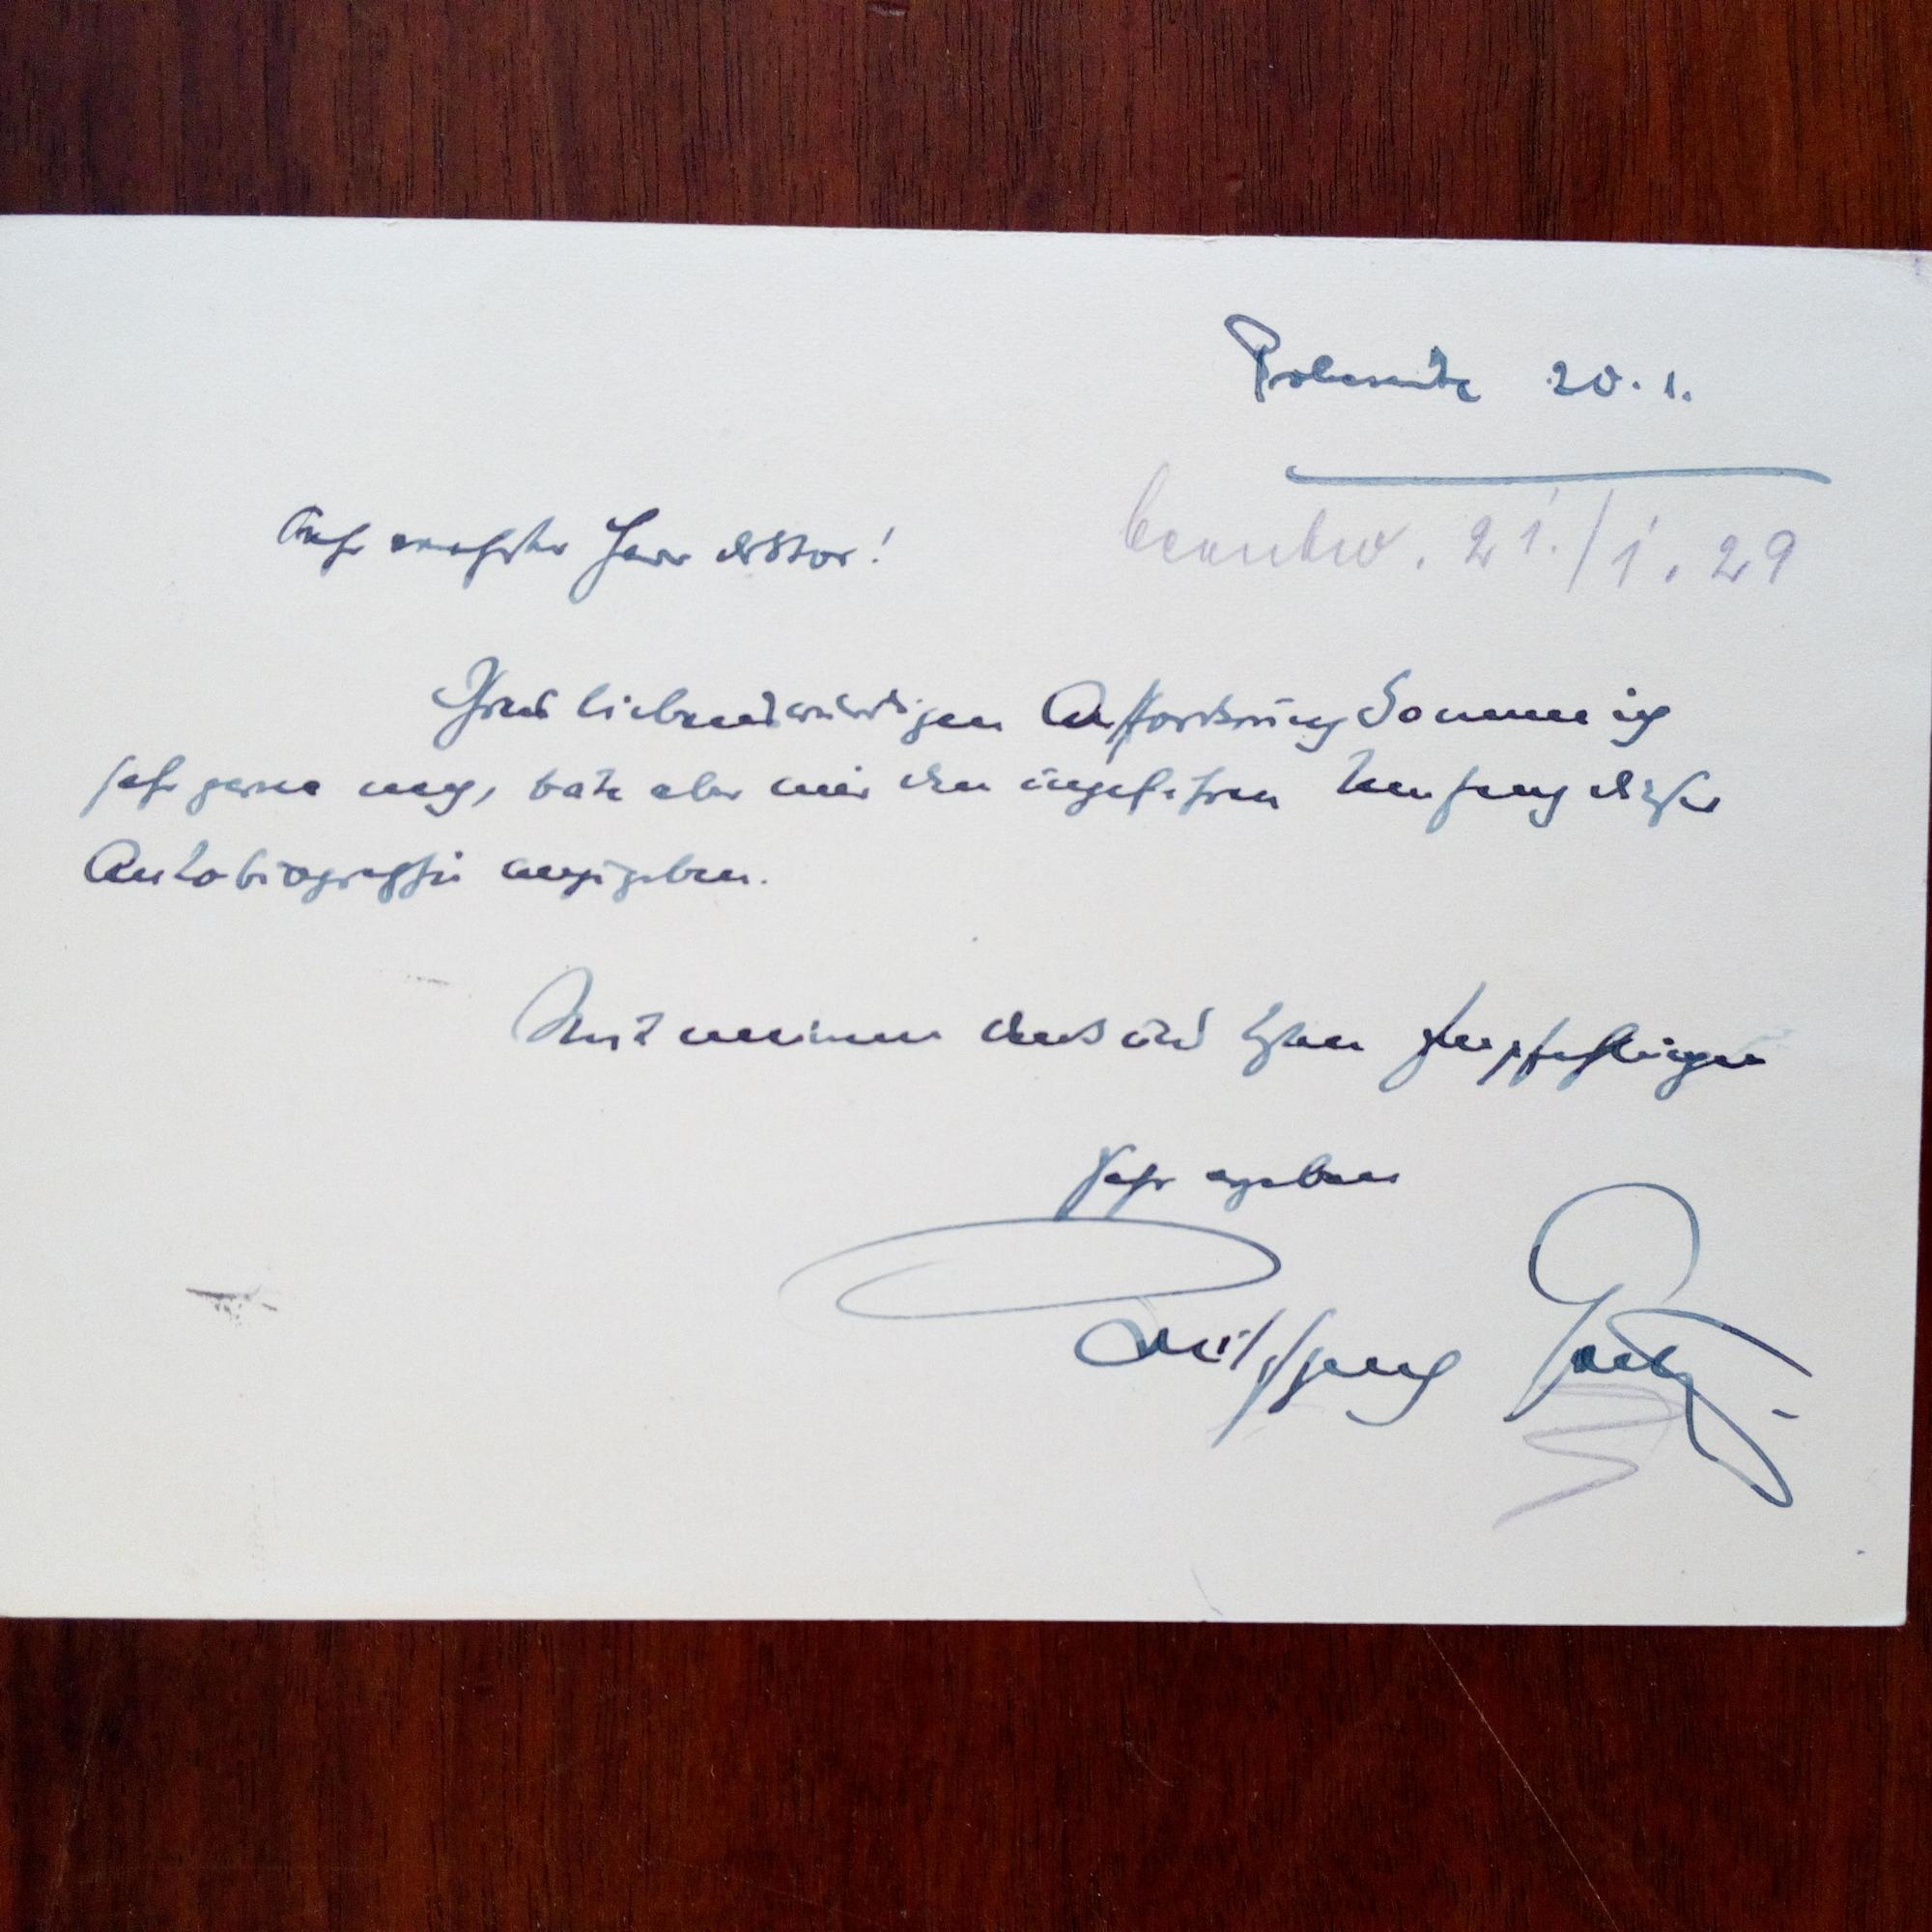 20. 1.
beantw. 21./1. 29
Sehr verehrter Herr Doktor!
Ihrer liebenswürdigen Aufforderung komme ich
sehr gerne nach, bäte aber mir den ungefähren Umfang dieser
Autobiographie anzugeben.
Mit meinen Empfehlungen
Sehr ergeben
Wolfgang Goetz